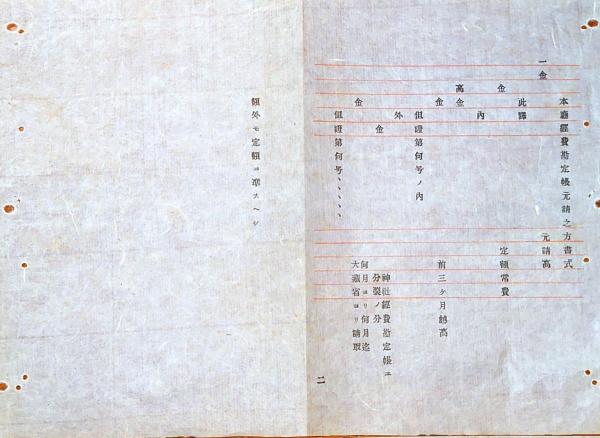 本廳經費勘定帳元請之方書式
一金
元請高
此譯
金
定額常費
內
萬
金
金
前三ケ月越高
但證第何号ノ內
外
神社經費勘定帳エ
金
分裂ノ分
金
何月ヨリ何月迄
大藏省ヨリ請取
但證第何号、、、、、
二
額外モ定額ニ準スヘシ